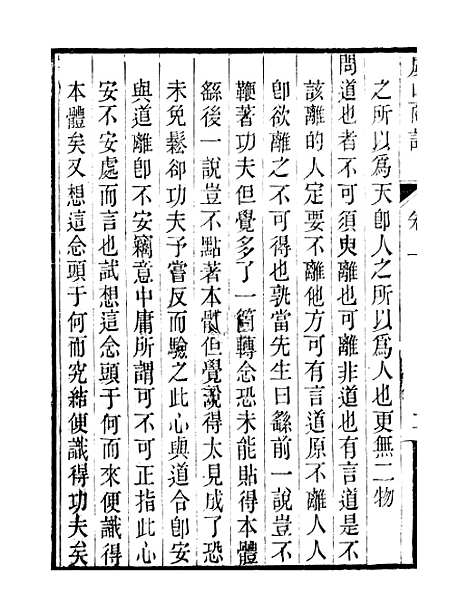 之所以爲天卽人之所以爲人也更無二物
問道也者不可須臾離也可離非道也有言道是不
該離的人定要不離他方可有言道原不離人人
卽欲離之不可得也孰當先生曰繇前一說豈不
鞭著功夫但覺多了一箇轉念恐未能貼得本體
繇後一說豈不點著本體但覺說得太見成了恐
未免鬆卻功夫予嘗反而驗之此心與道合卽安
與道離卽不安竊意中庸所謂可不可正指此心
安不安處而言也試想這念頭于何而來便識得
本體矣又想這念頭于何而究結便識得功夫矣